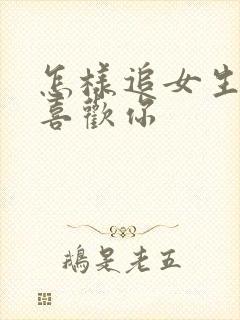 怎樣追女生
喜歡你
鵝是老五